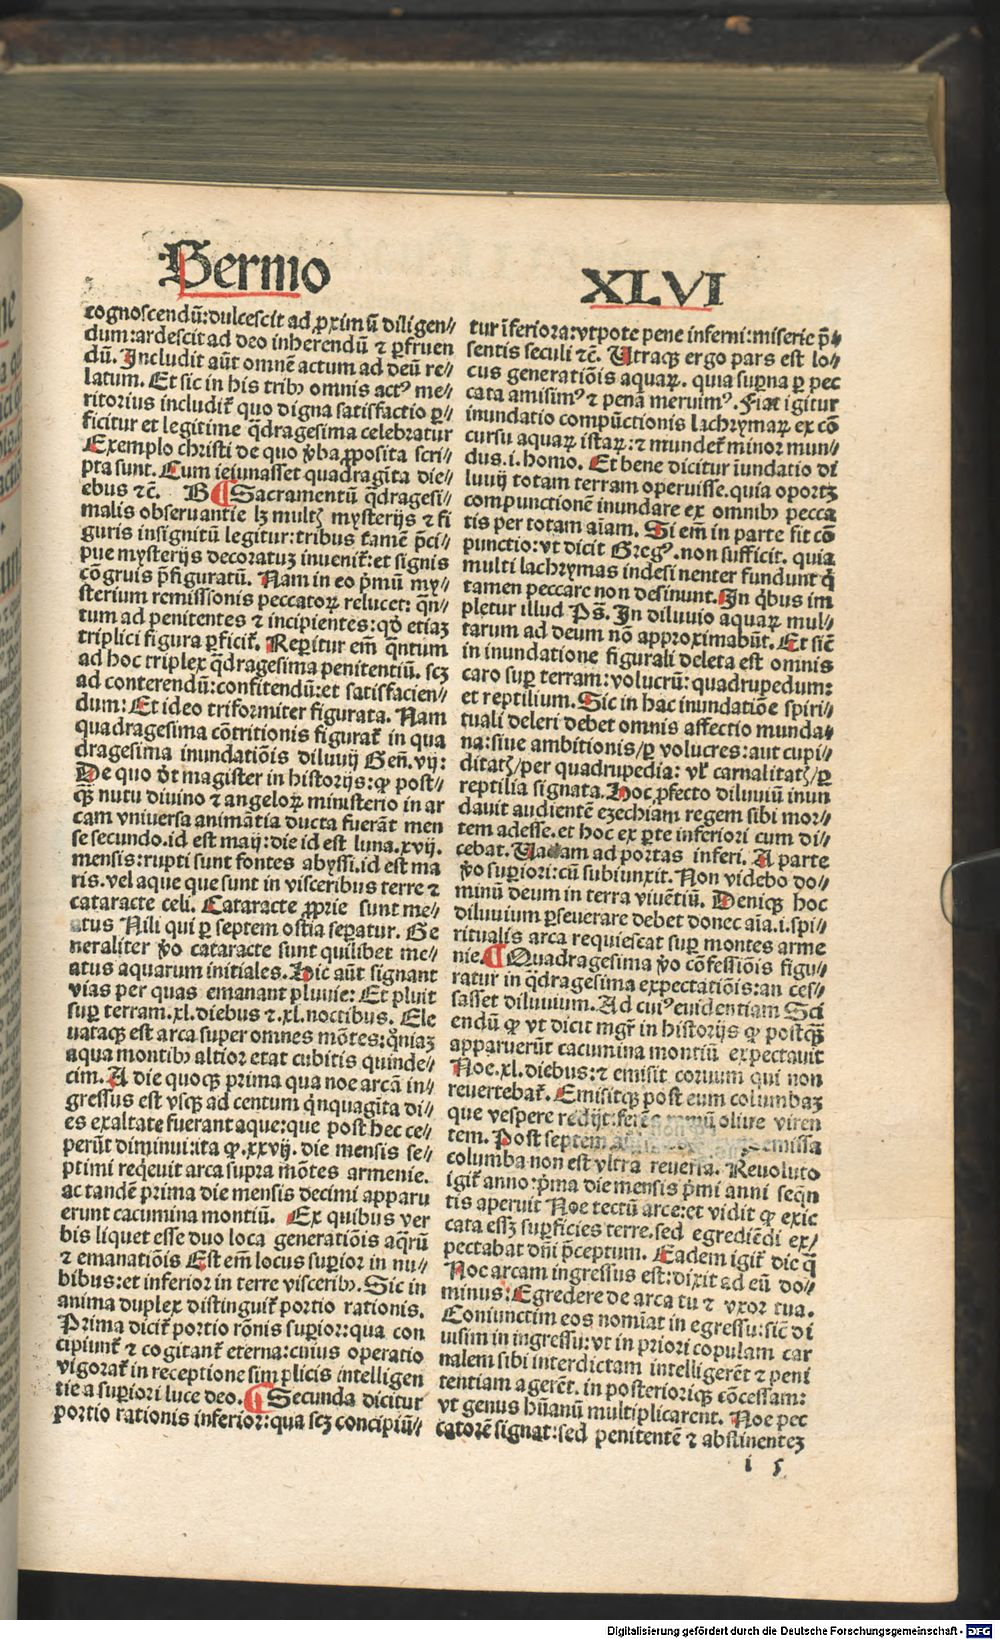 Sermo XLVI
cognoscendū:dulcescit ad ꝓximū diligen//
dum:ardescit ad deo inherendū ⁊ ꝑfruen
dū. Includit aūt omnē actum ad deū re//
latum. Et sic in his tribꝫ omnis actꝰ me//
ritorius includit᷑ quo digna satisfactio ꝑ//
ficitur et legitime q̄dragesima celebratur
Exemplo christi de quo v̓ba ꝓposita scri//
pta sunt. Cum ieiunasset quadragīta die//
ebus ⁊c̄. B ¶ Sacramentū q̄dragesi//
malis obseruantie lꝫ multꝭ mysterijs ⁊ fi
guris insignitū legitur:tribus tamē p̄ci//
pue mysterijs decoratuꝫ inuenit᷑:et signis
cōgruis p̄figuratū. Nam in eo p̄mū my//
sterium remissionis peccatoꝝ relucet: q̄n//
tum ad penitentes ⁊ incipientes:qd̓ etiaꝫ
triplici figura ꝑficit᷑. Reperitur em̄ q̄ntum
ad hoc triplex q̄dragesima penitentiū. scꝫ
ad conterendū:confitendū:et satisfacien//
dum: Et ideo triformiter figurata. Nam
quadragesima cōtritionis figurat᷑ in qua
dragesima inundatiōis diluuij Gen̄. vij:
De quo d̓t magister in historijs:ꝙ post//
qꝫ̄ nutu diuino ⁊ angeloꝝ ministerio in ar
cam vniuersa animātia ducta fuerāt men
se secundo.id est maij:die id est luna.xvij.
mensis:rupti sunt fontes abyssi.id est ma
ris.vel aque que sunt in visceribus terre ⁊
cataracte celi. Cataracte ꝓprie sunt me//
atus Nili qui ꝑ septem ostia seꝑatur. Ge
neraliter v̓o cataracte sunt quilibet me//
atus aquarum initiales. Hic aūt signant
vias per quas emanant pluuie: Et pluit
suꝑ terram.xl.diebus ⁊.xl.noctibus. Ele
uataqꝫ est arca super omnes mōtes:qm̄iaꝫ
aqua montibꝫ altior etat cubitis quinde//
cim. A die quoqꝫ prima qua noe arcā in//
gressus est vsqꝫ ad centum q̄nquagīta di//
es exaltate fuerant aque:que post hec ce//
perūt diminui:ita ꝙ.xxvij. die mensis se//
ptimi req̄euit arca supra mōtes armenie.
ac tandē prima die mensis decimi apparu
erunt cacumina montiū. Ex quibus ver
bis liquet esse duo loca generatiōis aq̄rū
⁊ emanatiōis Est em̄ locus suꝑior in nu//
bibus:et inferior in terre visceribꝫ. Sic in
anima duplex distinguit᷑ portio rationis.
Prima dicit᷑ portio rōnis suꝑior:qua con
cipiunt᷑ ⁊ cogitant᷑ eterna:cuius operatio
vigorat᷑ in receptione simplicis intelligen
tie a suꝑiori luce deo. ¶ Secunda dicitur
portio rationis inferior:qua scꝫ concipiū//
tur īferiora:vtpote pene inferni:miserie p̄//
sentis seculi ⁊c̄. Utraqꝫ ergo pars est lo//
cus generatiōis aquaꝝ. quia suꝑna ꝑ pec
cata amisimꝰ ⁊ penā meruimꝰ. Fiat igitur
inundatio compūctionis lachrymaꝝ ex cō
cursu aquaꝝ istaꝝ:⁊ mundet᷑ minor mun//
dus.i.homo. Et bene dicitur īundatio di
luuij totam terram operuisse.quia oportꝫ
compunctionē inundare ex omnibꝫ pecca
tis per totam aīam. Si em̄ in parte fit cō
punctio:vt dicit Gregꝰ.non sufficit. quia
multi lachrymas indesinenter fundunt q̓
tamen peccare non desinunt. In q̓bus im
pletur illud Ps̄. In diluuio aquaꝝ mul//
tarum ad deum nō approximabūt. Et sic̄
in inundatione figurali deleta est omnis
caro suꝑ terram:volucrū:quadrupedum:
et reptilium. Sic in hac inundatiōe spiri//
tuali deleri debet omnis affectio munda//
na:siue ambitionis/ꝑ volucres:aut cupi//
ditatꝭ/per quadrupedia: vl̓ carnalitatꝭ/ꝑ
reptilia signata. Hoc ꝓfecto diluuiū inun
dauit audientē ezechiam regem sibi mor//
tem adesse.et hoc ex ꝑte inferiori cum di//
cebat. Uadam ad portas inferi. A parte
v̓o suꝑiori:cū subiunxit. Non videbo do//
minū deum in terra viuētiū. Deniqꝫ hoc
diluuium ꝑseuerare debet donec aīa.i.spi//
ritualis arca requiescat suꝑ montes arme
nie. ¶ Quadragesima v̓o cōfessiōis figu//
ratur in q̄dragesima expectatiōis:an ces//
sasset diluuium. Ad cuiꝰ euidentiam Sci
endū ꝙ vt dicit mgr̄ in historijs ꝙ postqꝫ̄
apparuerūt cacumina montiū expectauit
Noe.xl.diebus:⁊ emisit coruum qui non
reuertebat᷑. Emisitqꝫ post eum columbaꝫ
que vespere redijt:ferēs ramū oliue viren
tem. Post septem emissa
columba non est vltra reuersa. Reuoluto
igit᷑ anno:p̄ma die mensis p̄mi anni seqn̄
tis aperuit Noe tectū arce:et vidit ꝙ exic
cata essꝫ suꝑficies terre.sed egrediēdi ex//
pectabat dn̄i p̄ceptum. Eadem igit᷑ die q̄
Noe arcam ingressus est:dixit ad eū do//
minus:Egredere de arca tu ⁊ vxor tua.
Coniunctim eos nomīat in egressu:sic̄ di
uisim in ingressu:vt in priori copulam car
nalem sibi interdictam intelligerēt ⁊ peni
tentiam agerēt.in posterioriqꝫ cōcessam:
vt genus hūanū multiplicarent. Noe pec
catorē signat:sed penitentē ⁊ abstinenteꝫ
i 5
Digitalisierung gefördert durch die Deutsche Forschungsgemeinschaft - DFG